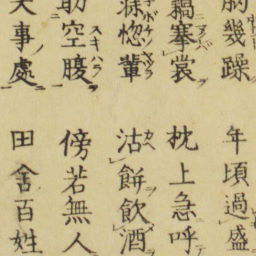 幾躁 年頃過盛
搴裳 枕上急呼
寐惚輩 沽餅飲酒
助空腹 傍若無人
事處 田舍百姓